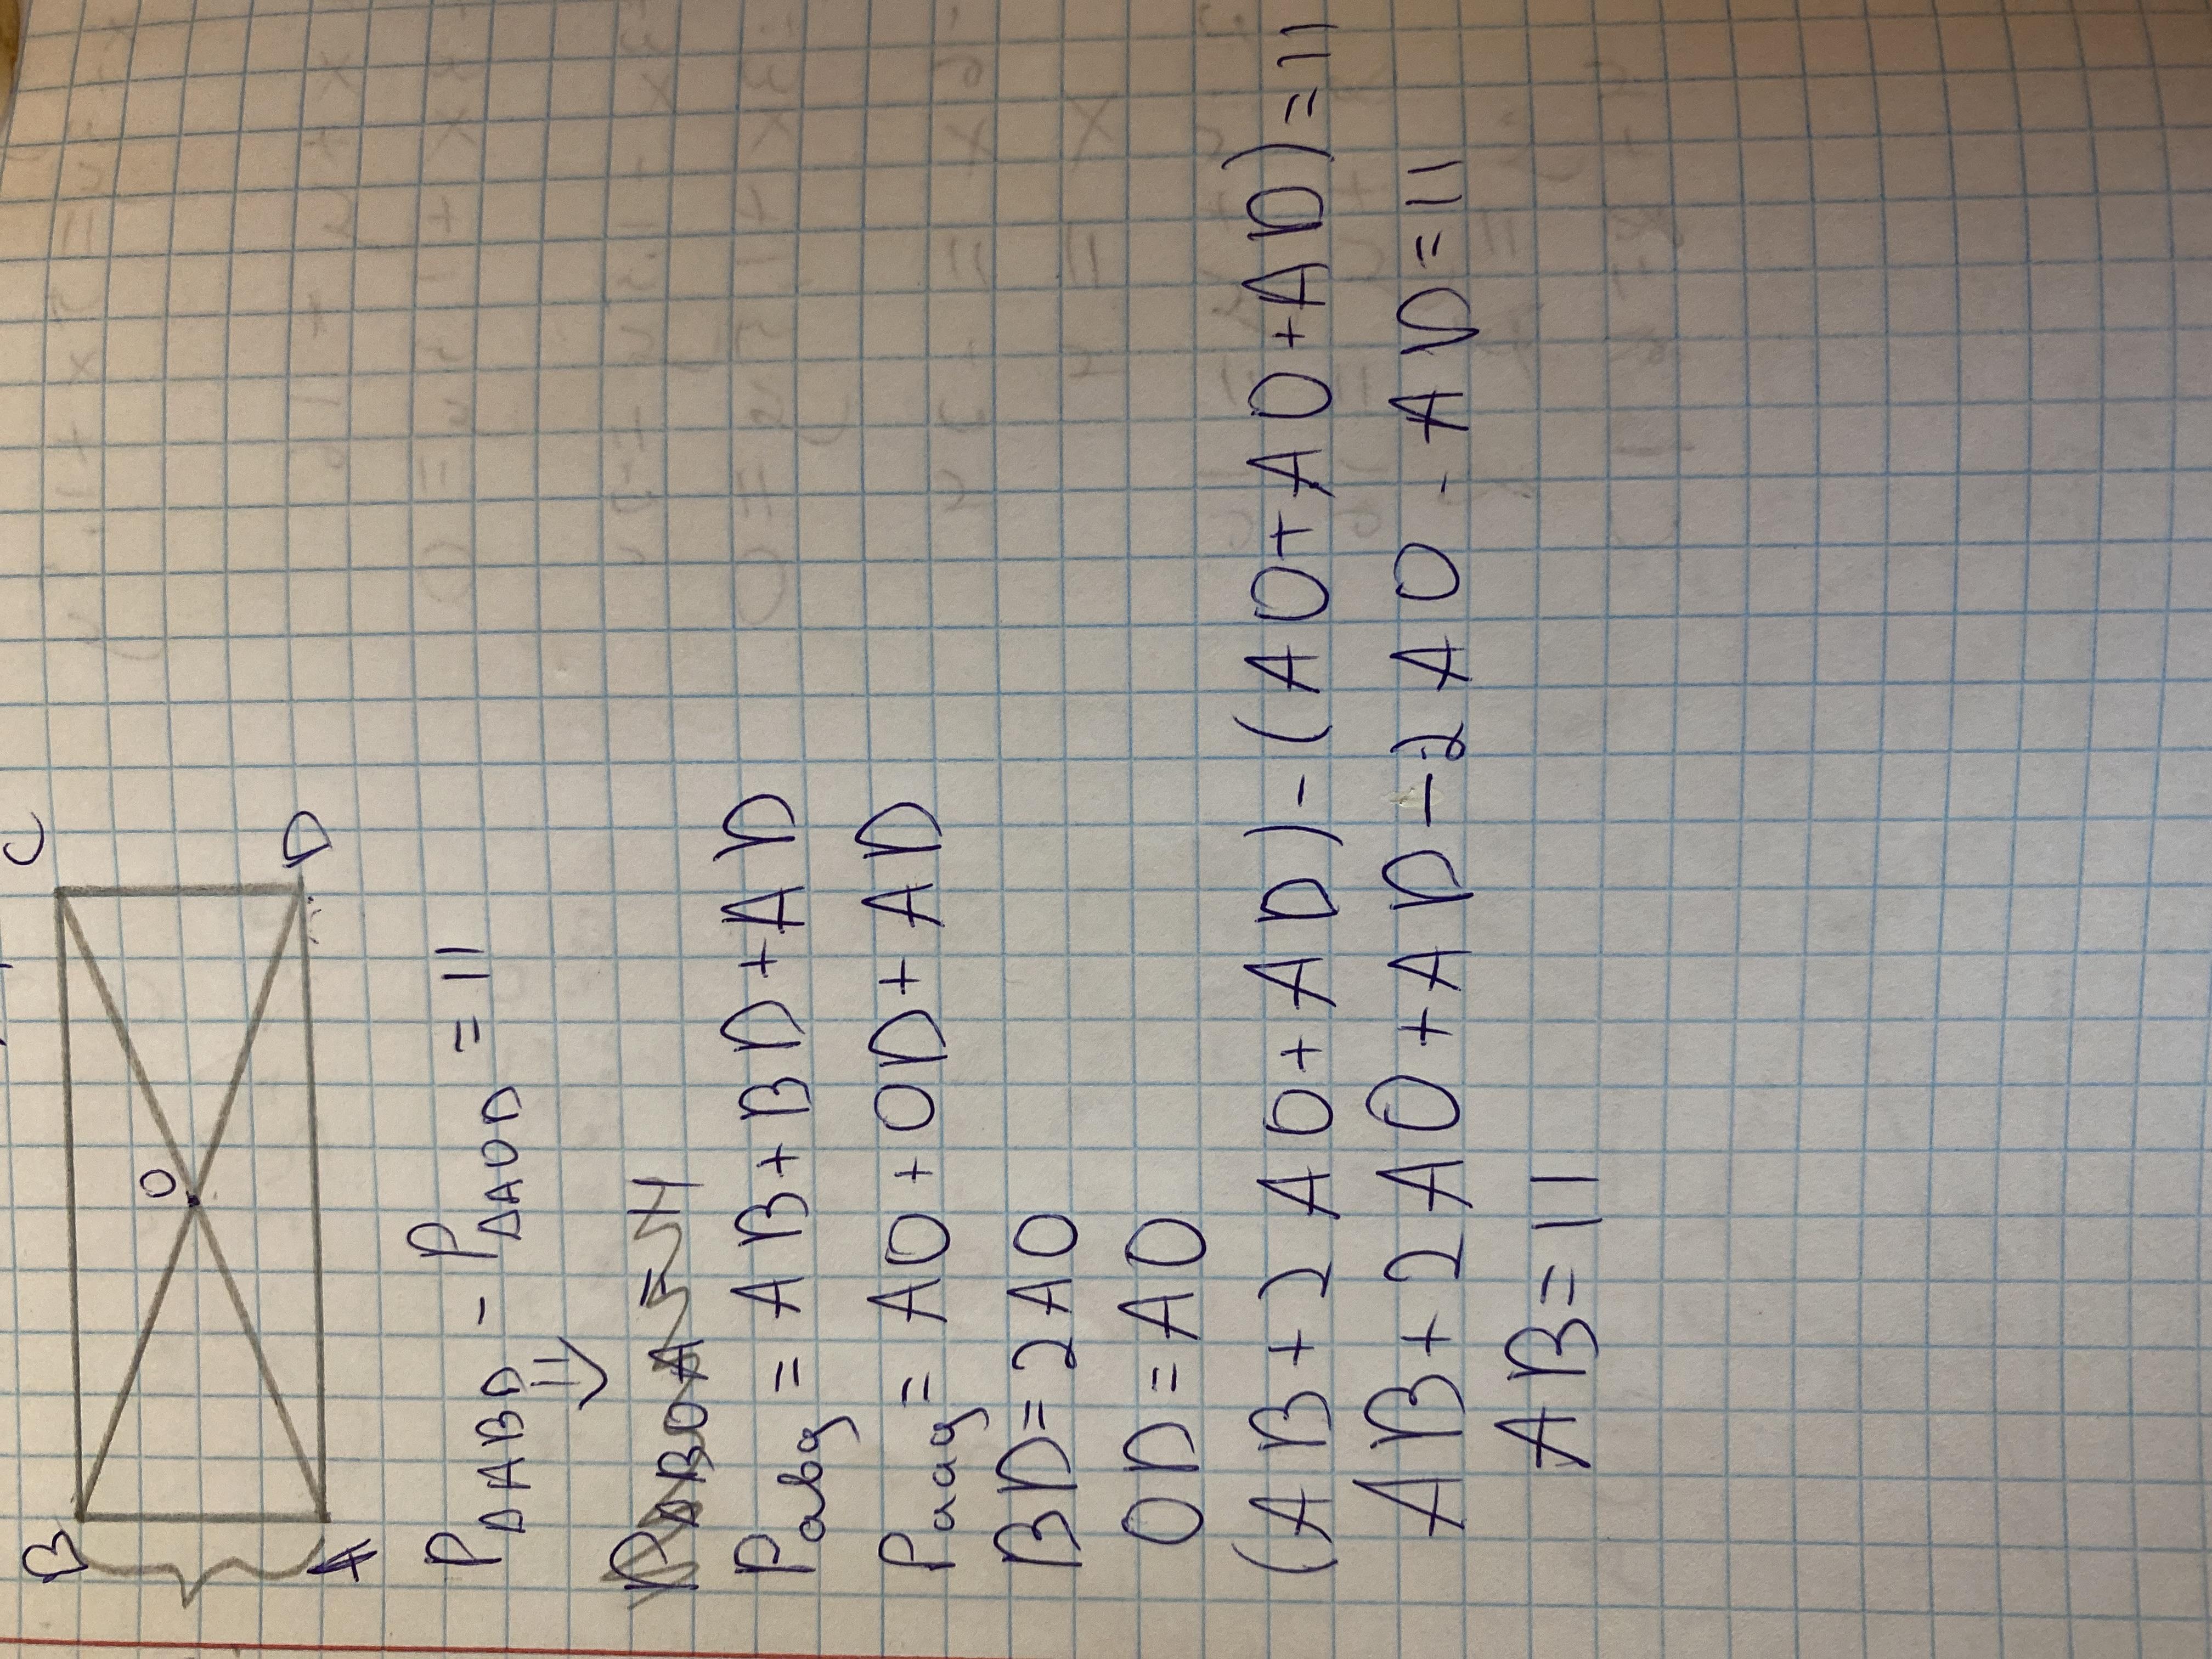 B C
O
A D
P△ABD - P△AOD = 11
⇓
P△BOA = 11
Pавд = AB + BD + AD
Pаод = AO + OD + AD
BD = 2AO
OD = AO
(AB + 2AO + AD) - (AO + AO + AD) = 11
AB + 2AO + AD - 2AO - AD = 11
AB = 11